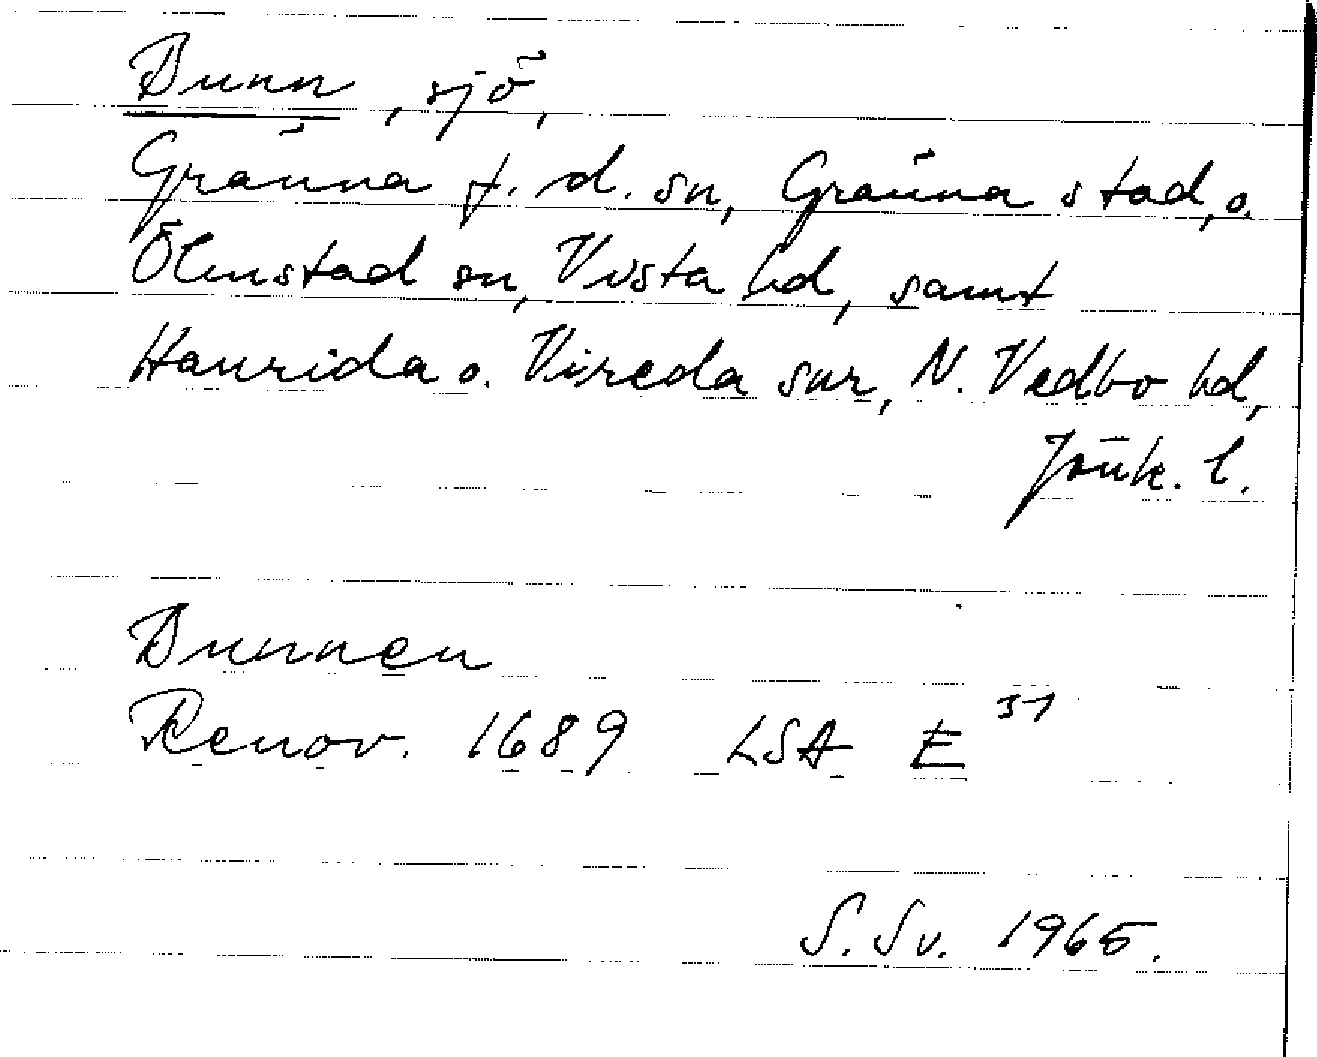 Bunn, sjö,
Gränna f. d. sn, Gränna stad, o.
Ölmstad sn, Vista hd, samt
Haurida o. Vireda snr, N. Vedbo hd,
Jönk. l.
Bunnen
Renov. 1689 LSA E 31
S. Sv. 1965.